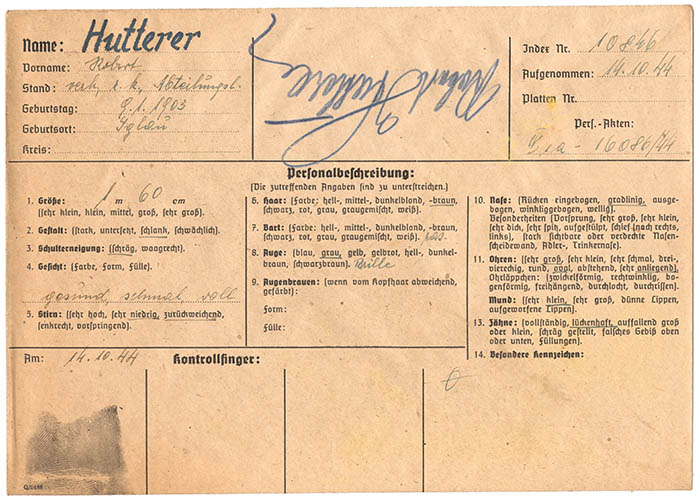 Name: Hutterer
Vorname: Robert
Stand: verh., r. k., Abteilungsl.
Geburtstag: 9.1.1903
Geburtsort: Iglau
Kreis:
Robert Hutterer
Index Nr. 10846
Aufgenommen: 14.10.44
Platten Nr.
Pers.-Akten:
a - 16086/44
Personalbeschreibung:
(Die zutreffenden Angaben sind zu unterstreichen.)
1. Größe: 1 m 60 cm
(sehr klein, klein, mittel, groß, sehr groß).
2. Gestalt: (stark, untersetzt, schlank, schwächlich).
3. Schulterneigung: (schräg, waagrecht).
4. Gesicht: (Farbe, Form, Fülle).
gesund, schmal, voll
5. Stirn: (sehr hoch, sehr niedrig, zurückweichend,
senkrecht, vorspringend).
6. Haar: (Farbe: hell-, mittel-, dunkelblond, -braun,
schwarz, rot, grau, graugemischt, weiß).
7. Bart: (Farbe: hell-, mittel-, dunkelblond, -braun,
schwarz, rot, grau, graugemischt, weiß). ras.
8. Auge: (blau, grau, gelb, gelbrot, hell-, dunkel-
braun, schwarzbraun). Brille
9. Augenbrauen: (wenn vom Kopfhaar abweichend,
gefärbt):
Form:
Fülle:
10. Nase: (Rücken eingebogen, gradlinig, ausge-
bogen, winkliggebogen, wellig).
Besonderheiten (Vorsprung, sehr groß, sehr klein,
sehr dick, sehr spitz, aufgestülpt, schief (nach rechts,
links), stark sichtbare oder verdeckte Nasen-
scheidewand, Adler-, Trinkernase).
11. Ohren: (sehr groß, sehr klein, sehr schmal, drei-,
viereckig, rund, oval, abstehend, sehr anliegend),
Ohrläppchen: (zwickelförmig, rechtwinklig, bo-
genförmig, freihängend, durchlocht, durchrissen).
Mund: (sehr klein, sehr groß, dünne Lippen,
aufgeworfene Lippen).
13. Zähne: (vollständig, lückenhaft, auffallend groß
oder klein, schräg gestellt, falsches Gebiß oben
oder unten, Füllungen).
14. Besondere Kennzeichen:
Am: 14.10.44
Kontrollfinger: